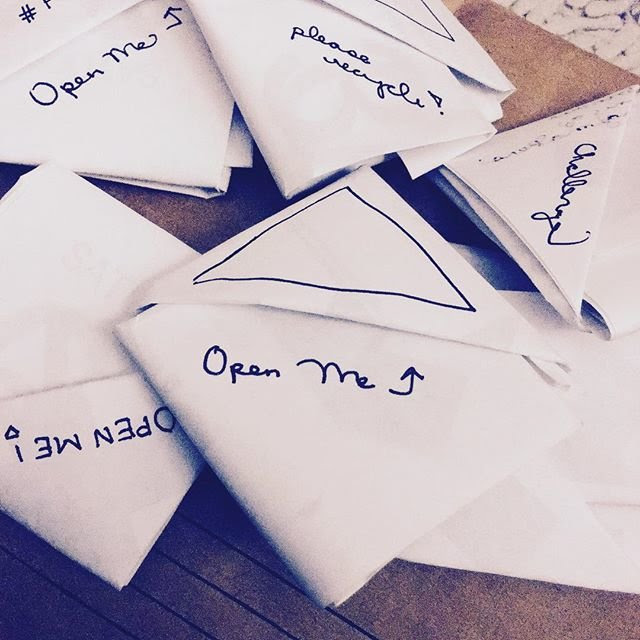 Open Me
please
recycle!
Challenge
Open Me
OPEN ME!